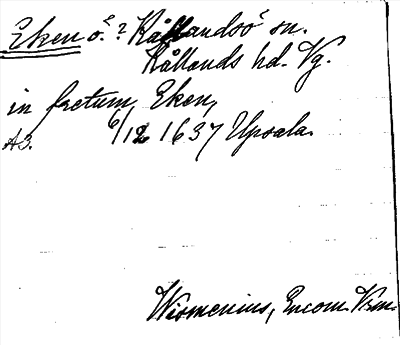 Eken ö.? Kållandsö sn.
Kållands hd. Vg.
in fretum, Eken,
AB. 6/12 1637 Upsala.
Wismenius, Encom. Vrm.